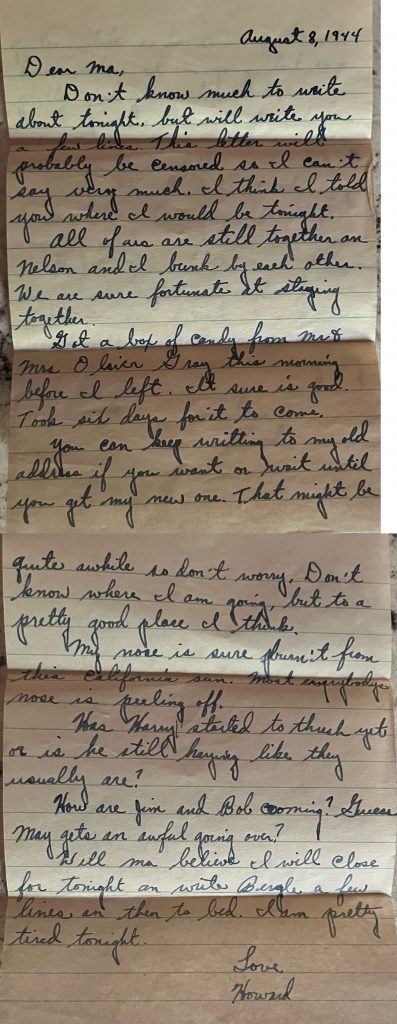 August 8, 1944
Dear Ma,
Don't know much to write
about tonight, but will write you
a few lines. This letter will
probably be censored so I can't
say very much. I think I told
you where I would be tonight.
All of us are still together an
Nelson and I bunk by each other.
We are sure fortunate at staying
together.
Got a box of candy from Mr &
Mrs Gray this morning
before I left. It sure is good.
Took six days for it to come.
You can keep writting to my old
address if you want or wait until
you get my new one. That might be
quite awhile so don't worry. Don't
know where I am going, but to a
pretty good place I think.
My nose is sure burn't from
this California sun. Most everybodys
nose is peeling off.
Has Harry started to thresh yet
or is he still haying like they
usually are?
How are Jim and Bob coming? Guess
May gets an awful going over?
Well ma believe I will close
for tonight an write a few
lines an then to bed. I am pretty
tired tonight.
Love
Howard